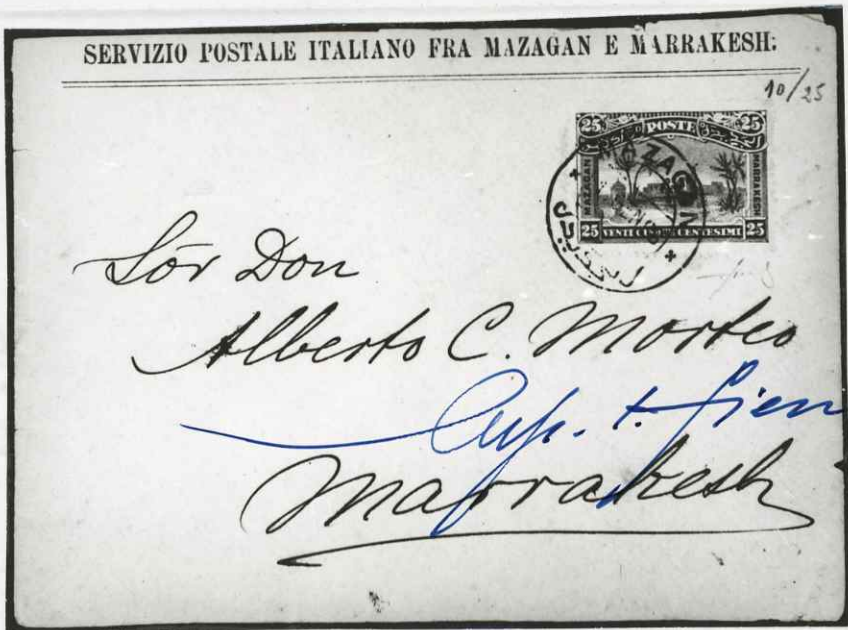 SERVIZIO POSTALE ITALIANO FRA MAZAGAN E MARRAKESH:
10/25
25 POSTE 25
MAZAGAN
MARRAKESH
25 VENTI CINQUE CENTESIMI 25
MAZAGAN
Sör Don
Alberto C. Morteo
Marrakesh